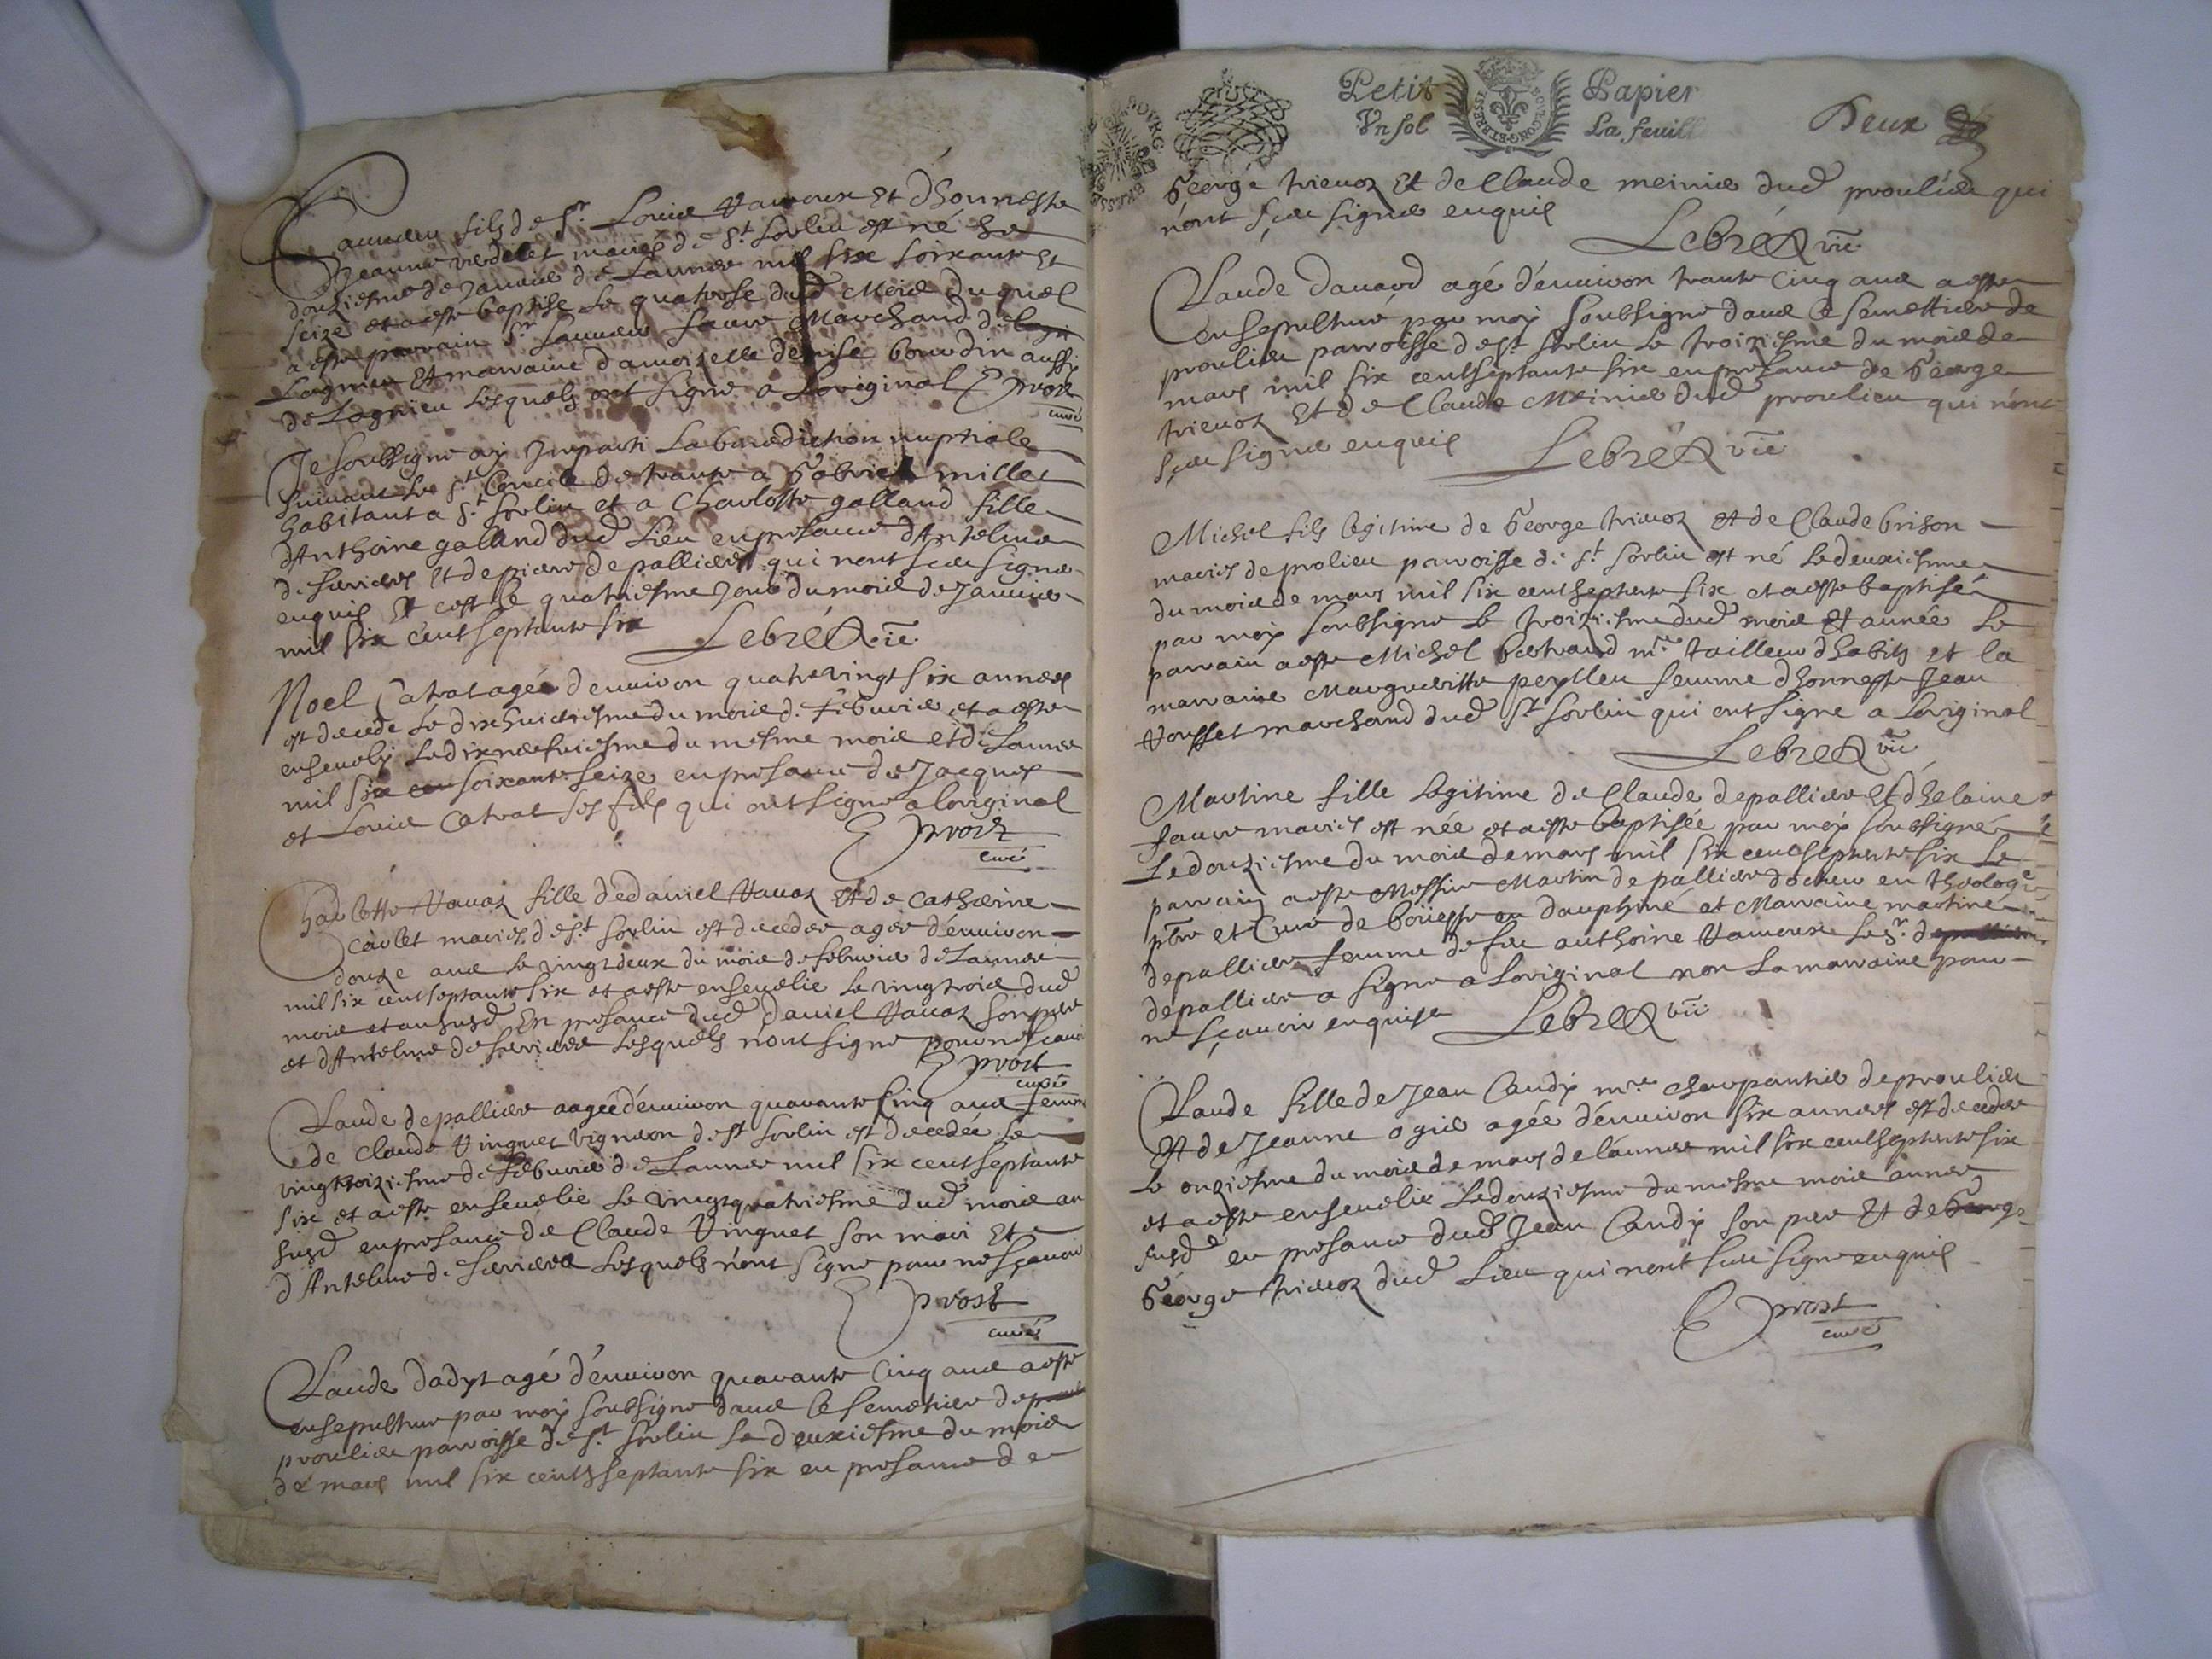 Laurent fils de Sr. Louis Vamoux Et d'honneste
Jeanne verdelet mariés de St Sorlin est né Le
douziesme de Janvier de Lannée mil six soixante Et
seize et a esté baptisé Le quatorse dud mois duquel
a esté parrain Sr Laurent favre Marchand de
Lagnieu Et marraine damoiselle denise bourdin aussi
de Lagnieu Lesquels ont signé a Loriginal E Prost
curé
Je soubsigné ay Imparti La benediction nuptiale
suivant Le St Concile de trante a Gabriel millet
habitant a St Sorlin et a Charlotte galland fille
d'Anthoine galland dud Lieu en presance d'Antelme
de serrieres Et de piere depalliere qui nont sceu signer
enquis Et cest le quatriesme Jour du mois de Janvier
mil six cent septante six Lebret vic.
Noel Catrat agée denviron quatre vingt six années
est decedé Le dix huictiesme du mois de Febvrier et a esté
ensevely Le dix neufviesme du mesme mois et de Lannée
mil six soixante seize en presance de Jacques
et Louis Catrat ses fils qui ont signé a loriginal
E Prost
curé
Charlotte Vavoz fille de daniel Vavoz Et de Catherine
Carlet mariés de St Sorlin est decedée agée d'environ
douze ans Le vingt deux du mois de febvrier de Lannée
mil six cent septante six et a esté ensevelie Le vingtrois dud
mois et an susd En presance dud daniel Vavoz son pere
et d'Antelme de serriere Lesquels n'ont signé pour ne sçavoir
E Prost
curé
Claude depalliere aagée d'environ quarante Cinq ans femme
de Claude Vinguet vigneron de St Sorlin est decedée Le
vingtroiziesme de Febvrier de Lannée mil six cent septante
six et a esté ensevelie Le vingt quatriesme dud mois an
susd en presance de Claude Vinguet son mari Et
d'Antelme de serriere Lesquels n'ont signé pour ne sçavoir
E Prost
curé
Claude dadyt agé d'environ quarante Cinq ans a esté
ensepulturé par moy soubsigné dans Le semetiere de
proulieu parroisse de St Sorlin Le deuxiesme du mois
de mars mil six cents septante six en presance de
Petit Papier
Un sol La feuill
BOURG EN BRESSE
Deux
George trievoz Et de Claude meinier dud proulieu qui
n'ont sceu signer enquis
Lebret vic
Claude davard agé d'environ trante Cinq ans a esté
ensepulturé par moy soubsigné dans Le semettiere de
proulieu parroisse de St Sorlin Le troiziesme du mois de
mars mil six cent septante six en presance de George
trievoz Et de Claude Meinier dud proulieu qui n'ont
sceu signer enquis Lebret vic
Michel fils legitime de George trievoz et de Claude brison
mariés de prolieu parroisse de St Sorlin est né Le deuxiesme
du mois de mars mil six cent septante six et a esté baptisé
par moy soubsigné Le troiziesme dud mois Et année Le
parrain a esté Michel bertrand mre tailleur d'habits et la
marraine Margueritte peylleu femme d'honneste Jean
Vousset marchand dud St Sorlin qui ont signé a Loriginal
Lebret vic
Martine fille Legitime de Claude depalliere Et d'helaine
favre mariés est née et a esté baptisée par moy soubsigné
Le douziesme du mois de mars mil six cent septante six Le
parrain a esté Messire Martin depalliere docteur en theologie
pbre et Curé de boüesse en dauphiné et Marraine martine
depalliere femme de feu anthoine Vamoux Le Sr.
depalliere a signé a Loriginal non La marraine pour
ne sçavoir enquise Lebret vic
Claude fille de Jean Candy mre charpantier de proulieu
Et de Jeanne ogier agée d'environ six années est decedée
Le onziesme du mois de mars de lannée mil six cent septante six
et a esté ensevelie Le douziesme du mesme mois année
susde en presance dud Jean Candy son pere Et de
George trievoz dud Lieu qui nont sceu signer enquis
E Prost
curé